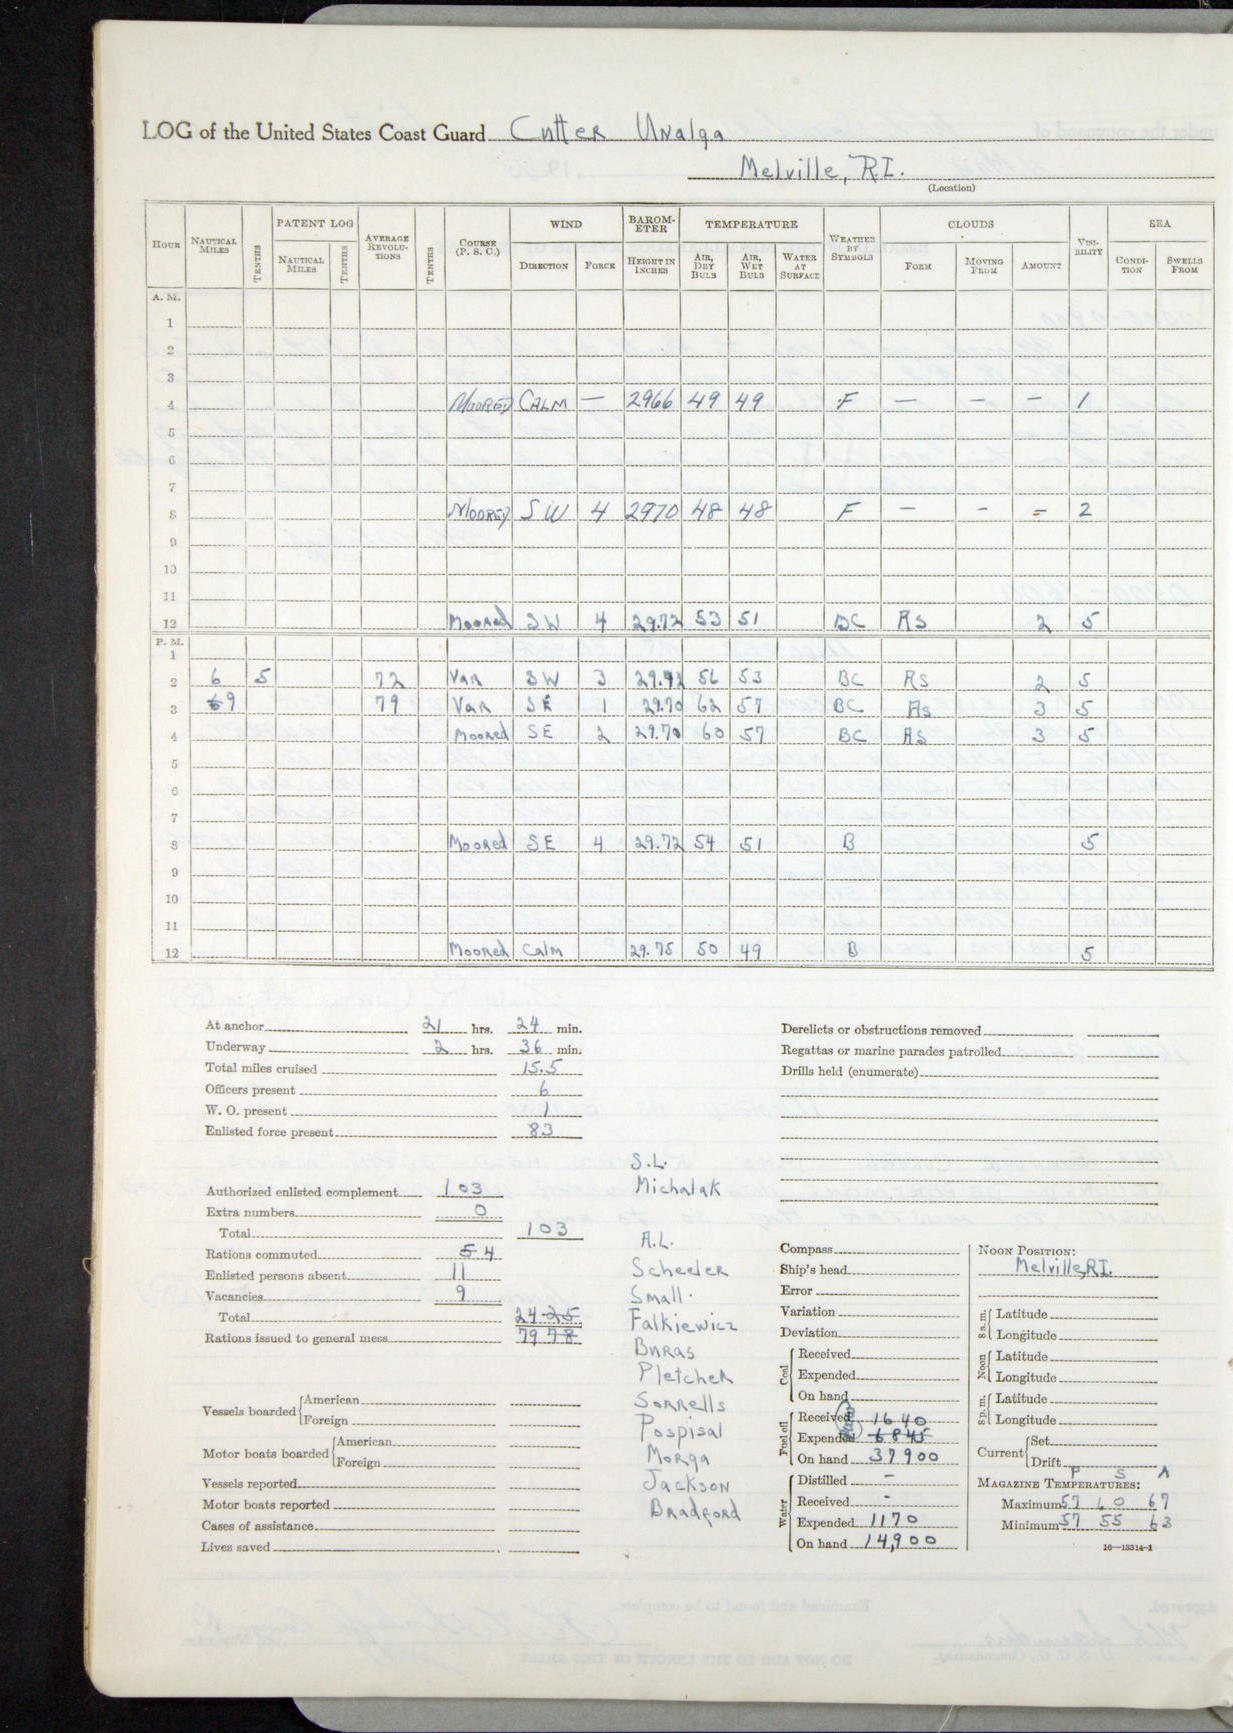 LOG of the United States Coast Guard Cutter Unalga
Melville, R.I.
(Location)
HOUR NAUTICAL MILES TENTHS PATENT LOG NAUTICAL MILES TENTHS AVERAGE REVOLUTIONS TENTHS COURSE (P. S. C.) WIND DIRECTION FORCE BAROMETER HEIGHT IN INCHES TEMPERATURE AIR, DRY BULB AIR, WET BULB WATER AT SURFACE WEATHER BY SYMBOLS CLOUDS FORM MOVING FROM AMOUNT VISIBILITY SEA CONDITION SWELLS FROM
A. M.
1
2
3
4 Moored CALM — 2966 49 49 F — — — 1
5
6
7
8 Moored SW 4 2970 48 48 F — - = 2
9
10
11
12 Moored SW 4 29.72 53 51 BC AS 2 5
P. M.
1
2 6 5 72 Var SW 3 29.72 56 53 BC AS 2 5
3 9 79 Var SE 1 29.70 62 57 BC As 3 5
4 Moored SE 2 29.70 60 57 BC AS 3 5
5
6
7
8 Moored SE 4 29.72 54 51 B 5
9
10
11
12 Moored Calm 29.75 50 49 B 5
At anchor 21 hrs. 24 min.
Underway 2 hrs. 36 min.
Total miles cruised 15.5
Officers present 6
W. O. present 1
Enlisted force present 83
Authorized enlisted complement 103
Extra numbers 0
Total 103
Rations commuted 5 4
Enlisted persons absent 11
Vacancies 9
Total 24 25
Rations issued to general mess 79 78
Vessels boarded American
Foreign
Motor boats boarded American
Foreign
Vessels reported
Motor boats reported
Cases of assistance
Lives saved
S.L.
Michalak
A.L.
Scheeler
Small
Falkiewicz
Buras
Pletcher
Sorrells
Pospisal
Morga
Jackson
Bradford
Derelicts or obstructions removed
Regattas or marine parades patrolled
Drills held (enumerate)
Compass
Ship's head
Error
Variation
Deviation
Coal
Received
Expended
On hand
Fuel oil
Received 1640
Expended 6845
On hand 37900
Water
Distilled —
Received -
Expended 1170
On hand 14,900
NOON POSITION:
Melville, R.I.
8 a.m. Latitude
Longitude
Noon Latitude
Longitude
8 p.m. Latitude
Longitude
Current Set
Drift
P S A
MAGAZINE TEMPERATURES:
Maximum 57 60 67
Minimum 57 55 63
16—13314-1